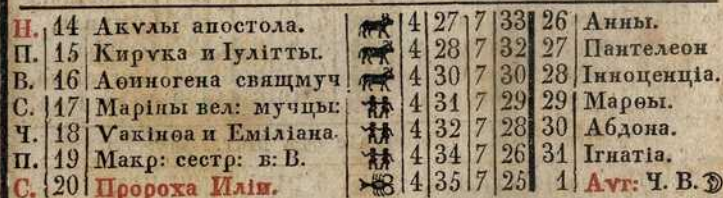 Н. 14 Акѵлы апостола. 4 27 7 33 26 Анны.
П. 15 Кирѵка и Іулітты. 4 28 7 32 27 Пантелеон
В. 16 Аѳиногена свящмуч 4 30 7 30 28 Інноценціа.
С. 17 Маріны вел: мучцы: 4 31 7 29 29 Марѳы.
Ч. 18 Ѵакінѳа и Еміліана. 4 32 7 28 30 Абдона.
П. 19 Макр: сестр: в: В. 4 34 7 26 31 Ігнатіа.
С. 20 Пророха Иліи. 4 35 7 25 1 Аѵг: Ч. В.